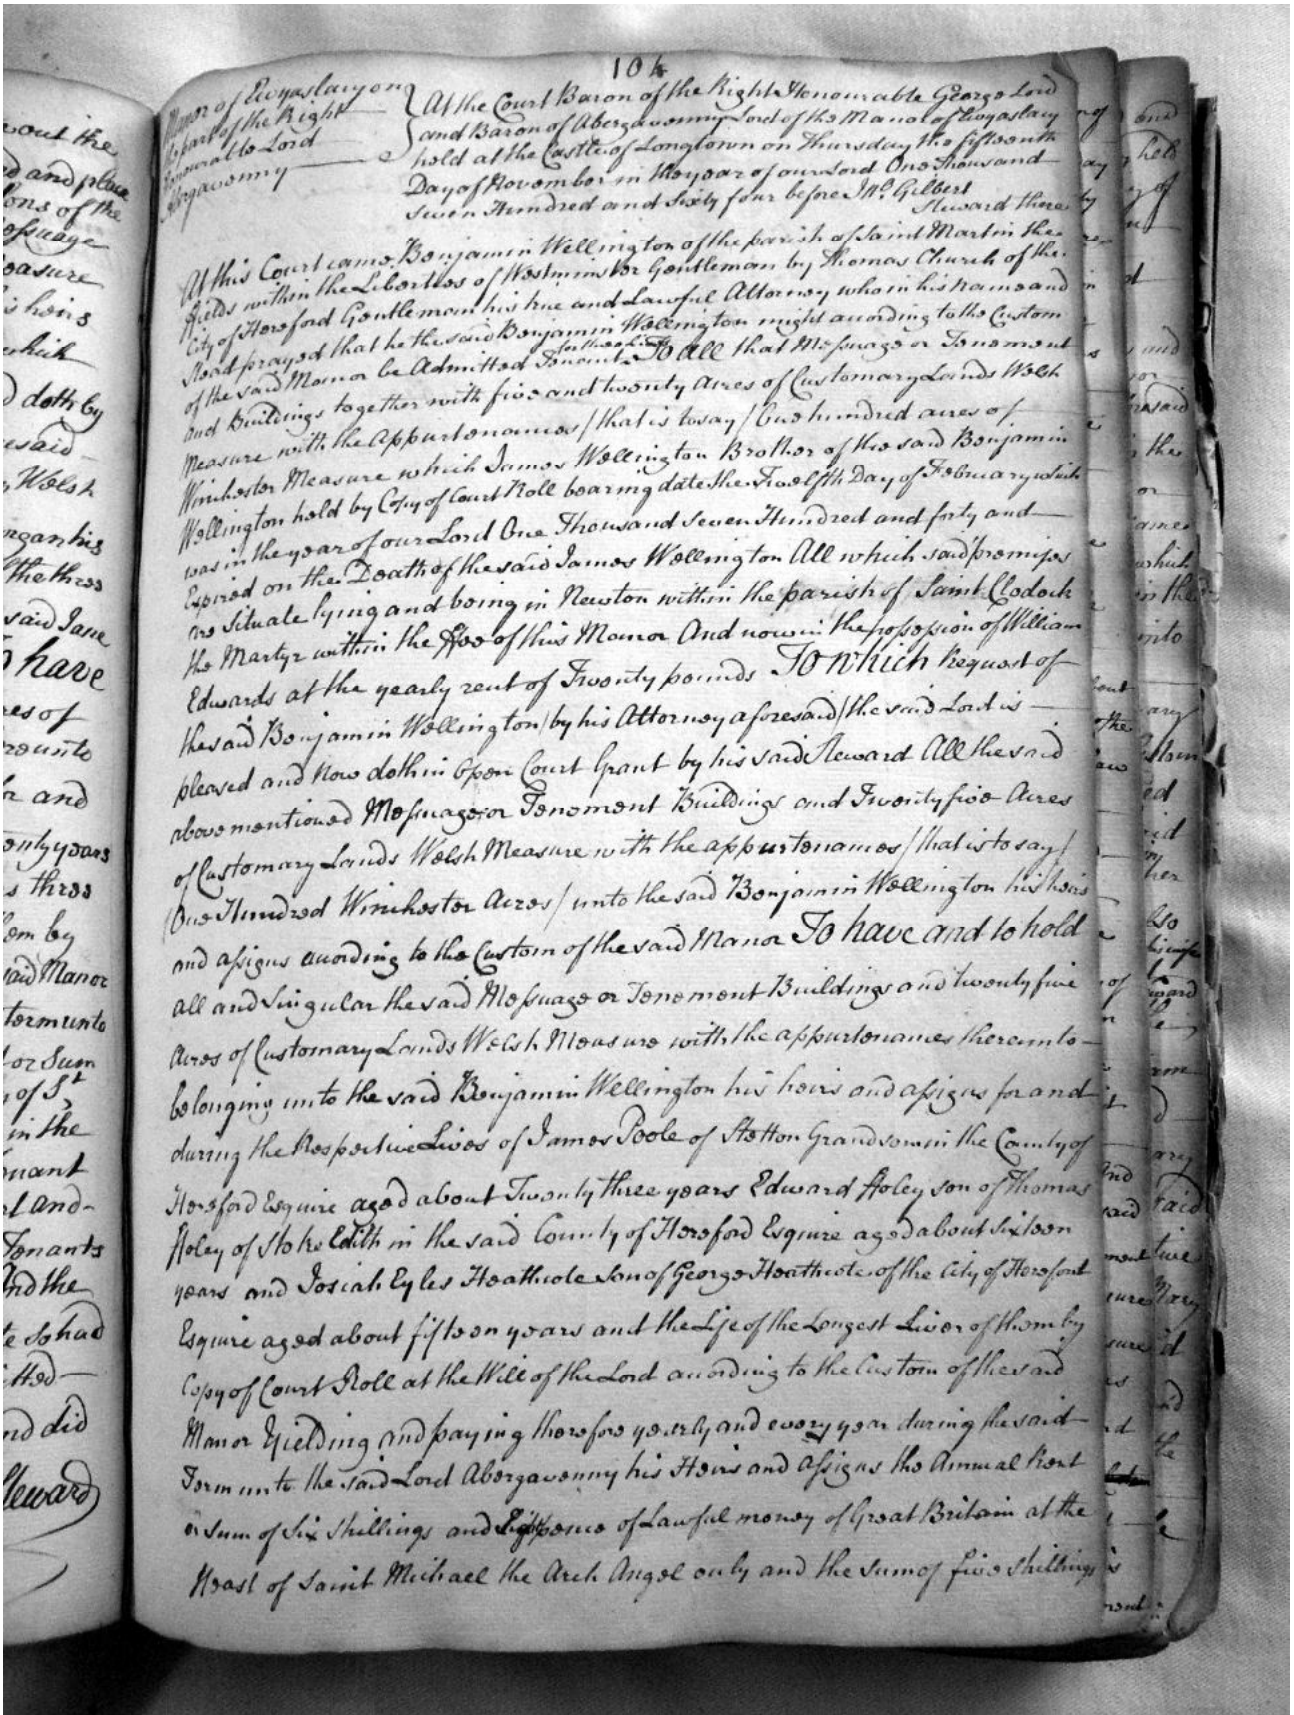 104
Manor of Ewyaslacy on
the part of the Right
Honourable Lord
Abergavenny
At the Court Baron of the Right Honourable George Lord
and Baron of Abergavenny Lord of the Manor of Ewyaslacy
held at the Castle of Longtown on Thursday the fifteenth
Day of November in the year of our Lord One Thousand
Seven Hundred and Sixty four before Jno. Gilbert
Steward there
At this Court came Benjamin Wellington of the parish of Saint Martin the
fields within the Liberties of Westminster Gentleman by Thomas Church of the
City of Hereford Gentleman his true and Lawful Attorney who in his name and
Stead prayed that he the said Benjamin Wellington might according to the Custom
of the said Manor be Admitted Tenant To All that Messuage or Tenement
and Buildings together with five and twenty Acres of Customary Lands Welsh
Measure with the Appurtenances / that is to say / One hundred acres of
Winchester Measure which James Wellington Brother of the said Benjamin
Wellington held by Copy of Court Roll bearing date the Twelfth Day of February which
was in the year of our Lord One Thousand Seven Hundred and forty and
Expired on the Death of the said James Wellington All which said premises
are Situate lying and being in Newton within the parish of Saint Clodock
the Martyr within the ffee of this Manor And now in the possession of William
Edwards at the yearly rent of Twenty pounds To which Request of
the said Benjamin Wellington / by his Attorney aforesaid / the said Lord is
pleased and Now doth in Open Court Grant by his said Steward All the said
above mentioned Messuage or Tenement Buildings and Twenty five Acres
of Customary Lands Welsh Measure with the appurtenances / that is to say /
/ One Hundred Winchester Acres / unto the said Benjamin Wellington his heirs
and assigns according to the Custom of the said Manor To have and to hold
all and Singular the said Messuage or Tenement Buildings and twenty five
Acres of Customary Lands Welsh Measure with the appurtenances thereunto
belonging unto the said Benjamin Wellington his heirs and assigns for and
during the Respective Lives of James Poole of Stotton Grandsom in the County of
Hereford Esquire aged about Twenty three years Edward ffoley son of Thomas
ffoley of Stoke Edith in the said County of Hereford Esquire aged about Sixteen
years and Josiah Eyles Heathcote son of George Heathcote of the City of Hereford
Esquire aged about fifteen years and the Life of the Longest Liver of them by
Copy of Court Roll at the Will of the Lord according to the Custom of the said
Manor Yielding and paying therefore yearly and every year during the said
Term unto the said Lord Abergavenny his Heirs and Assigns the Annual Rent
or Sum of Six Shillings and Eightpence of Lawful money of Great Britain at the
ffeast of Saint Michael the Arch Angel only and the Sum of five shillings